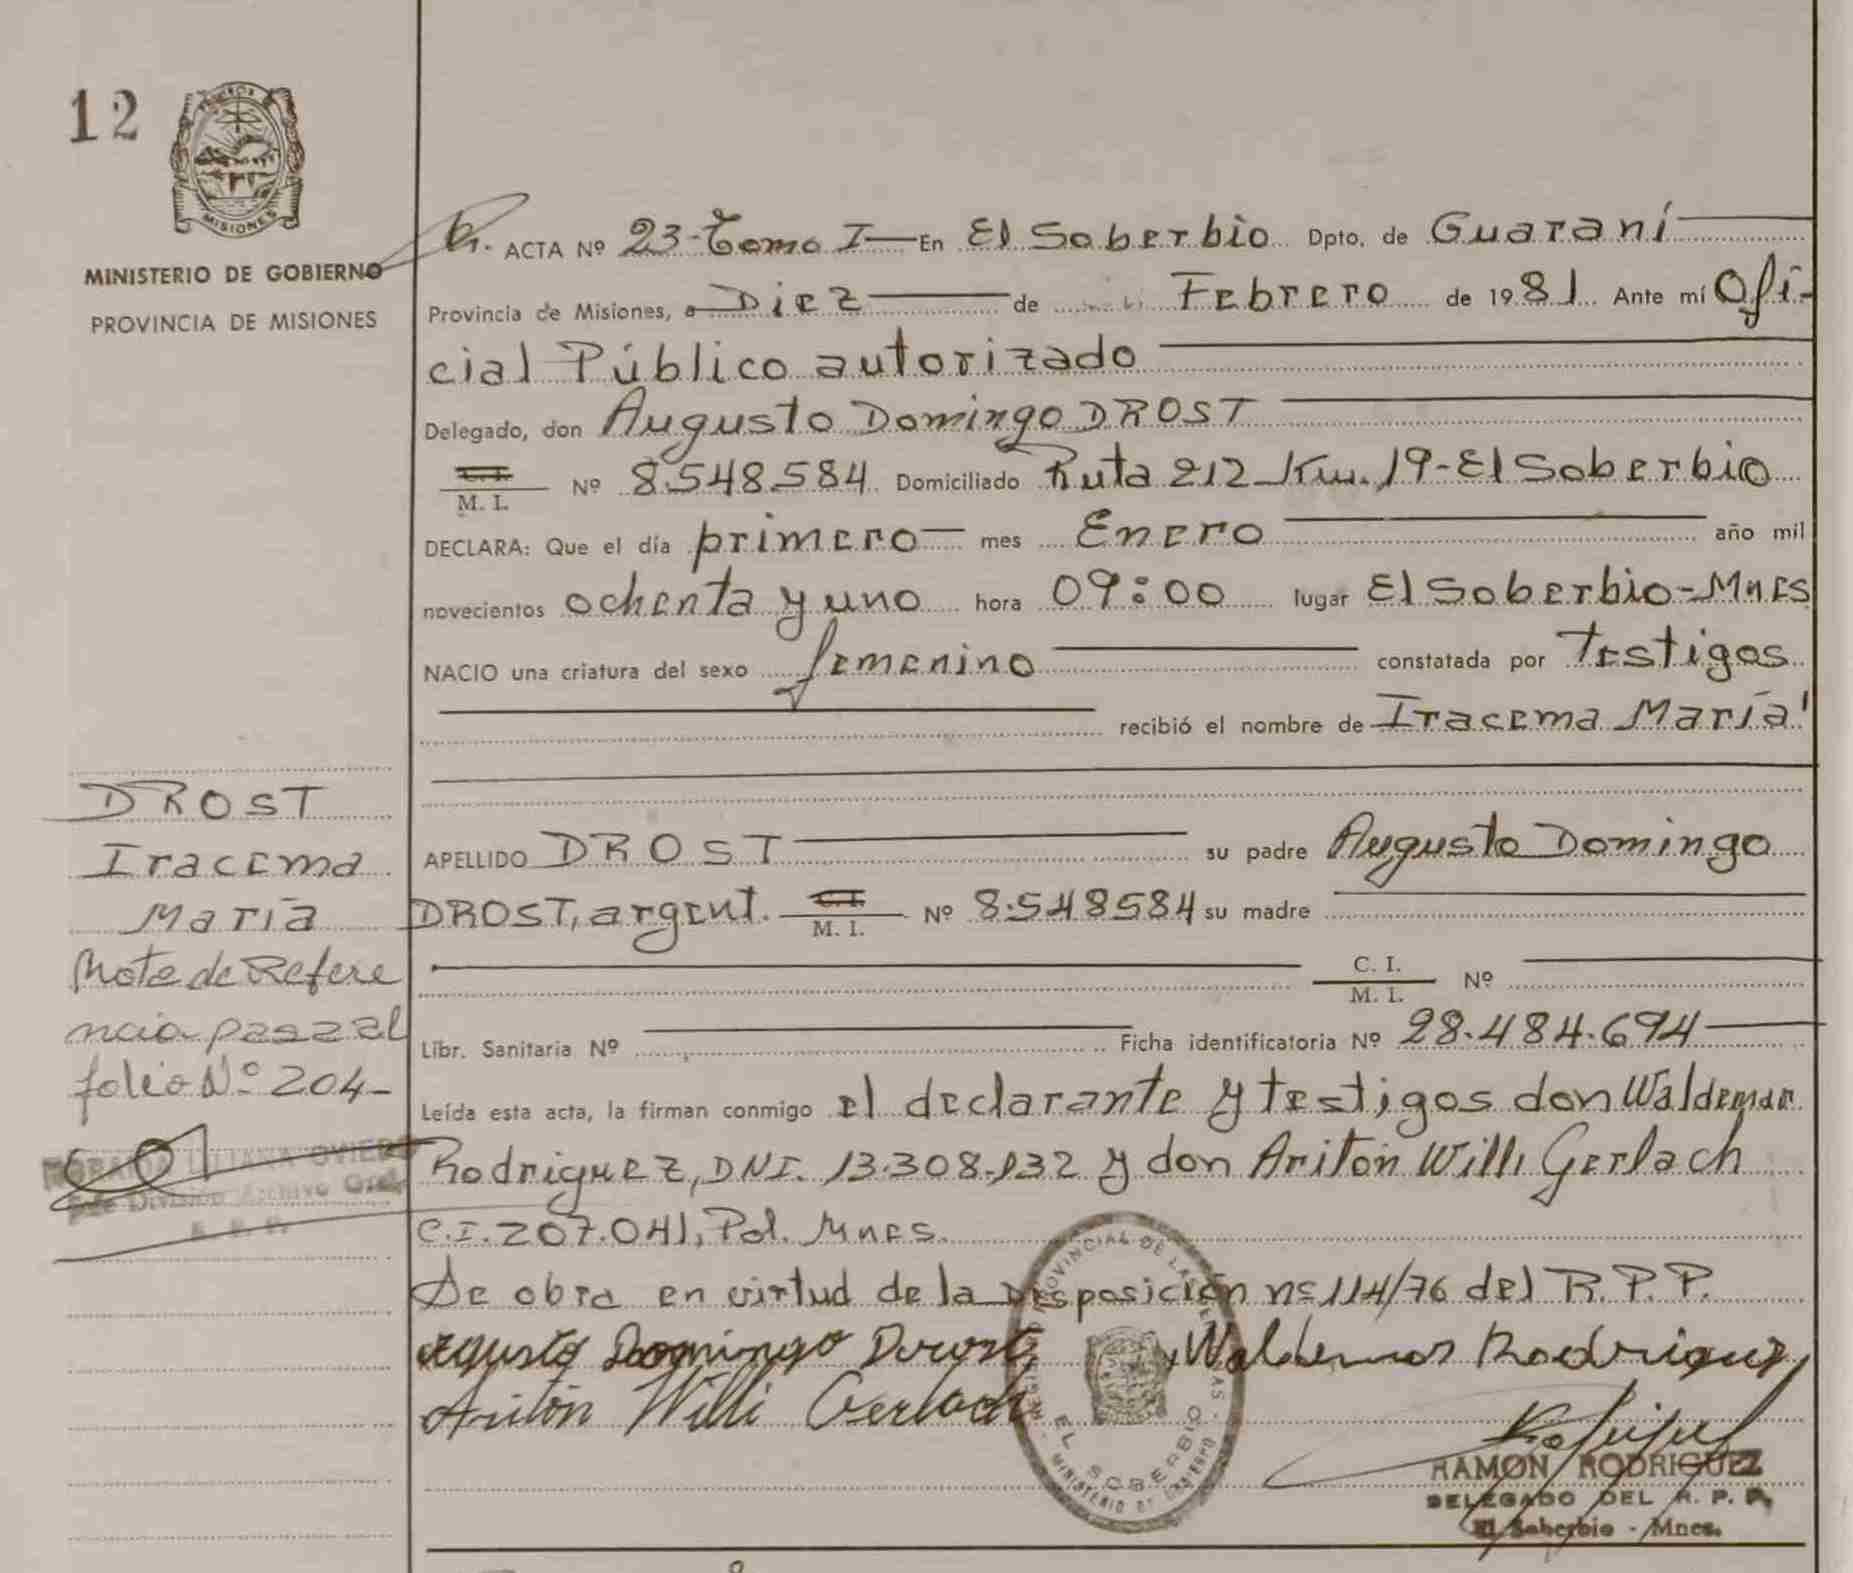 12
MISIONES
MINISTERIO DE GOBIERNO
PROVINCIA DE MISIONES
ACTA Nº 23-Tomo I— En El Soberbio Dpto. de Guaraní
Provincia de Misiones, a Diez de Febrero de 1981. Ante mí Ofi-
cial Público autorizado
Delegado, don Augusto Domingo DROST
C. I.
M. I. Nº 8.548.584 Domiciliado Ruta 212 Km. 19-El Soberbio
DECLARA: Que el día primero— mes Enero año mil
novecientos ochenta y uno hora 09:00 lugar El Soberbio-Mnes
NACIO una criatura del sexo femenino constatada por Testigos
recibió el nombre de Iracema María
DROST
Iracema
María
Nota de Refere
ncia pasa al
folio Nº 204-
LILIANA OVIEDO
División Archivo Gral.
APELLIDO DROST su padre Augusto Domingo
DROST, argent. C. I.
M. I. Nº 8.548584 su madre
C. I.
M. I. Nº
Libr. Sanitaria Nº Ficha identificatoria Nº 28.484.694
Leída esta acta, la firman conmigo el declarante y testigos don Waldemar
Rodriguez, DNI. 13.308.132 y don Ariton Willi Gerlach
C.I. 207.041, Pol. Mnes.
Se obra en virtud de la Disposición nº 114/76 del R.P.P.
agusto Domingo Drost Waldemar Rodriguez
Aritón Willi Gerlach
PROVINCIAL DE LAS PERSONAS
EL SOBERBIO
MINISTERIO DE GOBIERNO
RAMON RODRIGUEZ
DELEGADO DEL R. P. P.
El Soberbio - Mnes.